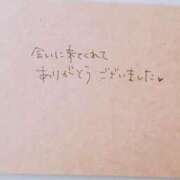 会いに来てくれて
ありがとう ございました♥